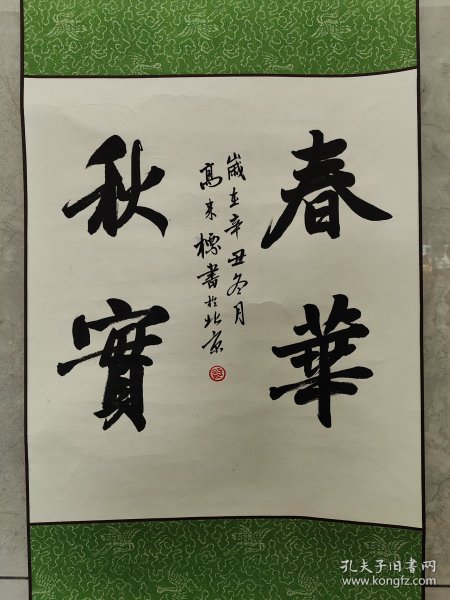 春華
秋實
歲在辛丑冬月
高来標書於北京
孔夫子旧书网
www.kongfz.com